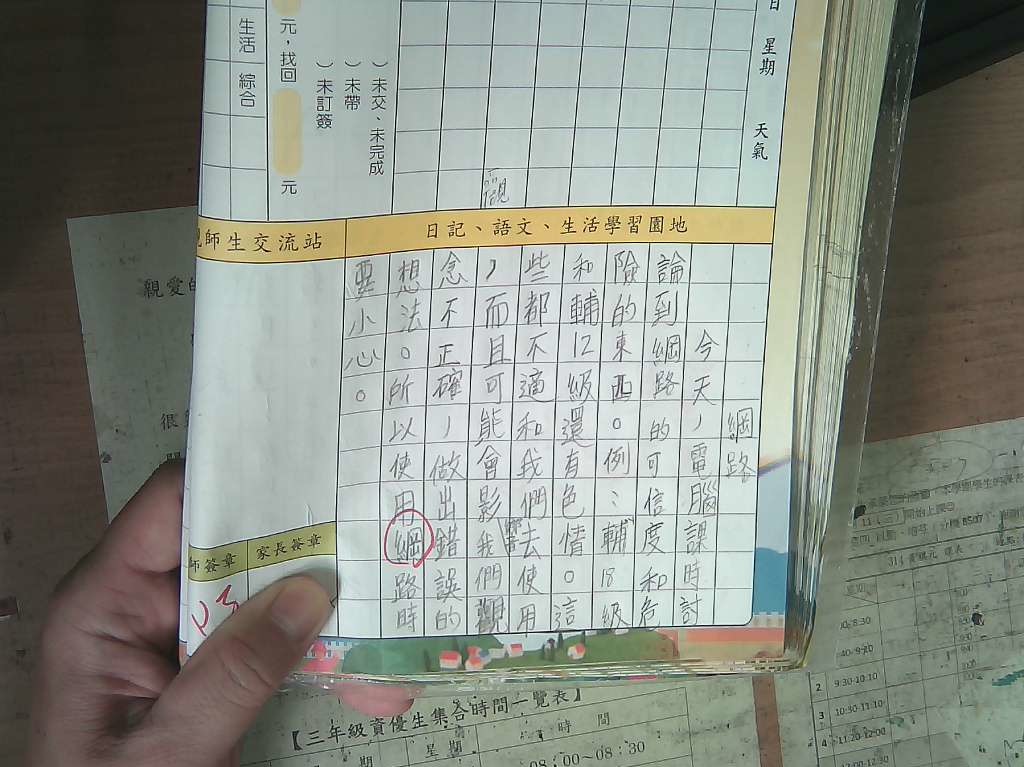 日 星期 天氣
)未交、未完成
)未帶
)未訂簽
元,找回 元
生活 綜合
日記、語文、生活學習園地
師生交流站
綱路
今天,電腦課時討
論到綱路的可信度和危
險的東西。例:輔18級
和輔12級還有色情。這
些都不適和我們去使用
,而且可能會影響我們觀
念不正確,做出錯誤的
想法。所以使用綱路時
要小心。
家長簽章
師簽章
親愛的
很
【三年級資優生集合時間一覽表】
星期 時間
08:00~08:30
2 9:30-10:10
3 10:30-11:10
4 11:20-12:00